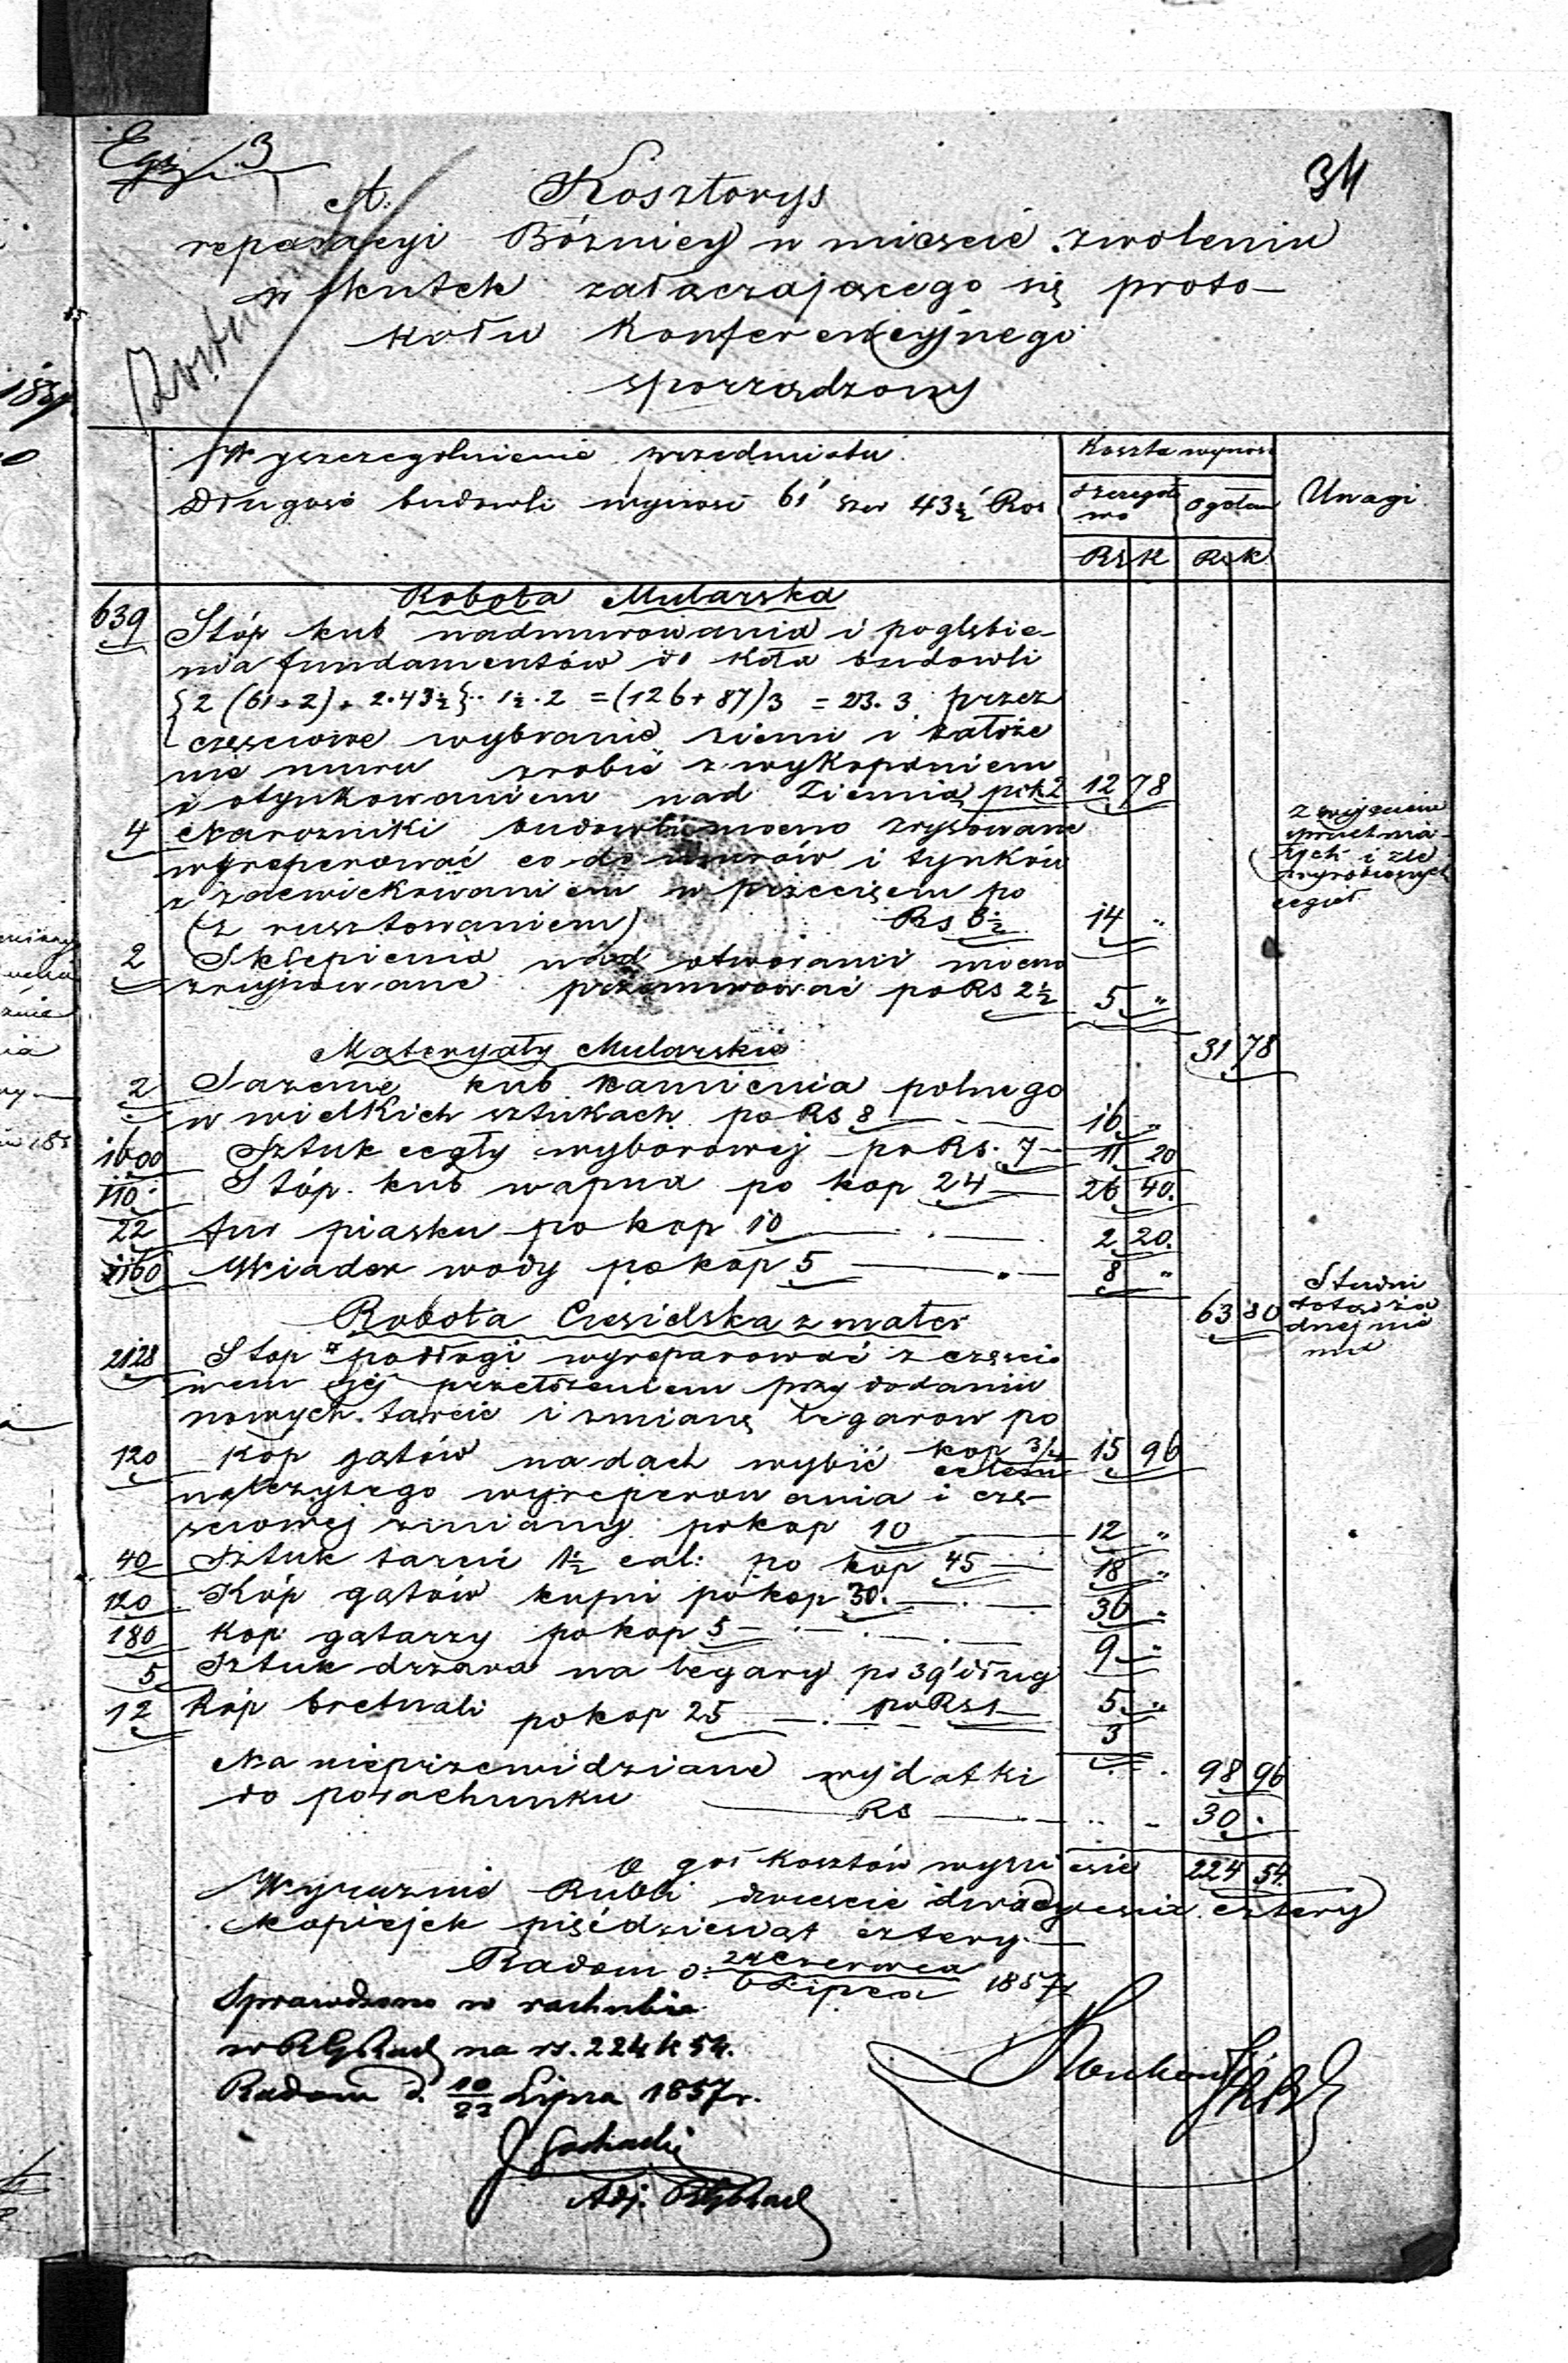 Egz. 3
34
A. Kosztorys
reparacyi Bóżnicy w mieście Zwoleniu
w skutek załączającego się proto-
kołu Konferencyjnego
sporządzony
Wyszczegolnienie przedmiotu
Koszta wynosz
Długość budowli wynosi 61' szer 43½' Ros
szczegoło
wo
ogołem
Uwagi
Rs k Rs k
Robota Mularska
639 Stóp kub nadmurowania i poglębie-
nia fundamentów do koła budowli
{2 (61+2) + 2.43½}.. 1½.2 = (126+87)3 = 213.3 przez
częsciowe wybranie ziemi i założe
nie muru zrobić z wykopaniem
i otynkowaniem nad ziemią po k 2 12 78
4 Narożniki budowli mocno zrysowane
wyreperować co do murów i tynków
z zaćwiekowaniem w przecięciu po
(z rusztowaniem) Rs 3½ 14 "
2 Sklepienia nad otworami mocno
zrujnowane przemurować po Rs 2½ 5 "
31 78
Materyały Mularskie
2 Sążenie kub kamienia polnego
w wielkich sztukach po Rs 8 16 "
1600 Sztuk cegły wyborowej po Rs. 7 11 20
110 Stóp kub wapna po kop 24 26 40
22 fur piasku po kop 10 2 20
160 Wiader wody po kop 5 8 "
63 80
Studni
żadnej nie
ma
Robota Ciesielska z mater
2128 Stop podłogi wyreparować z częscio
wem jej przełożeniem przy dodaniu
nowych tarcic i zmianą legarow po
kop 3/4 15 96
120 Kop gątów na dach wybić celem
należytego wyreperowania i czę-
sciowej zmiany po kop 10 12 "
40 Sztuk tarcic 1½ cal: po kop 45 18 "
120 Kóp gątów kupni po kop 30 36 "
180 Kop gątarzy po kop 5 9 "
5 Sztuk drzewa na legary po 39' dług
po Rs 1 5 "
12 Kóp bretnali po kop 25 3
98 96
Na nieprzewidziane wydatki
do porachunku Rs 30
Ogół kosztów wyniesie 224 54
Wyraznie Rubli dwiescie dwadziescia cztery
Kopiejek pięćdziesiąt cztery
Radom d: 24 Czerwca / 6 Lipca 1857 r
Sprawdzono w rachubie
w RGRad na rs. 224 k 54.
Radom d. 10/22 Lipca 1857 r.
Adj.